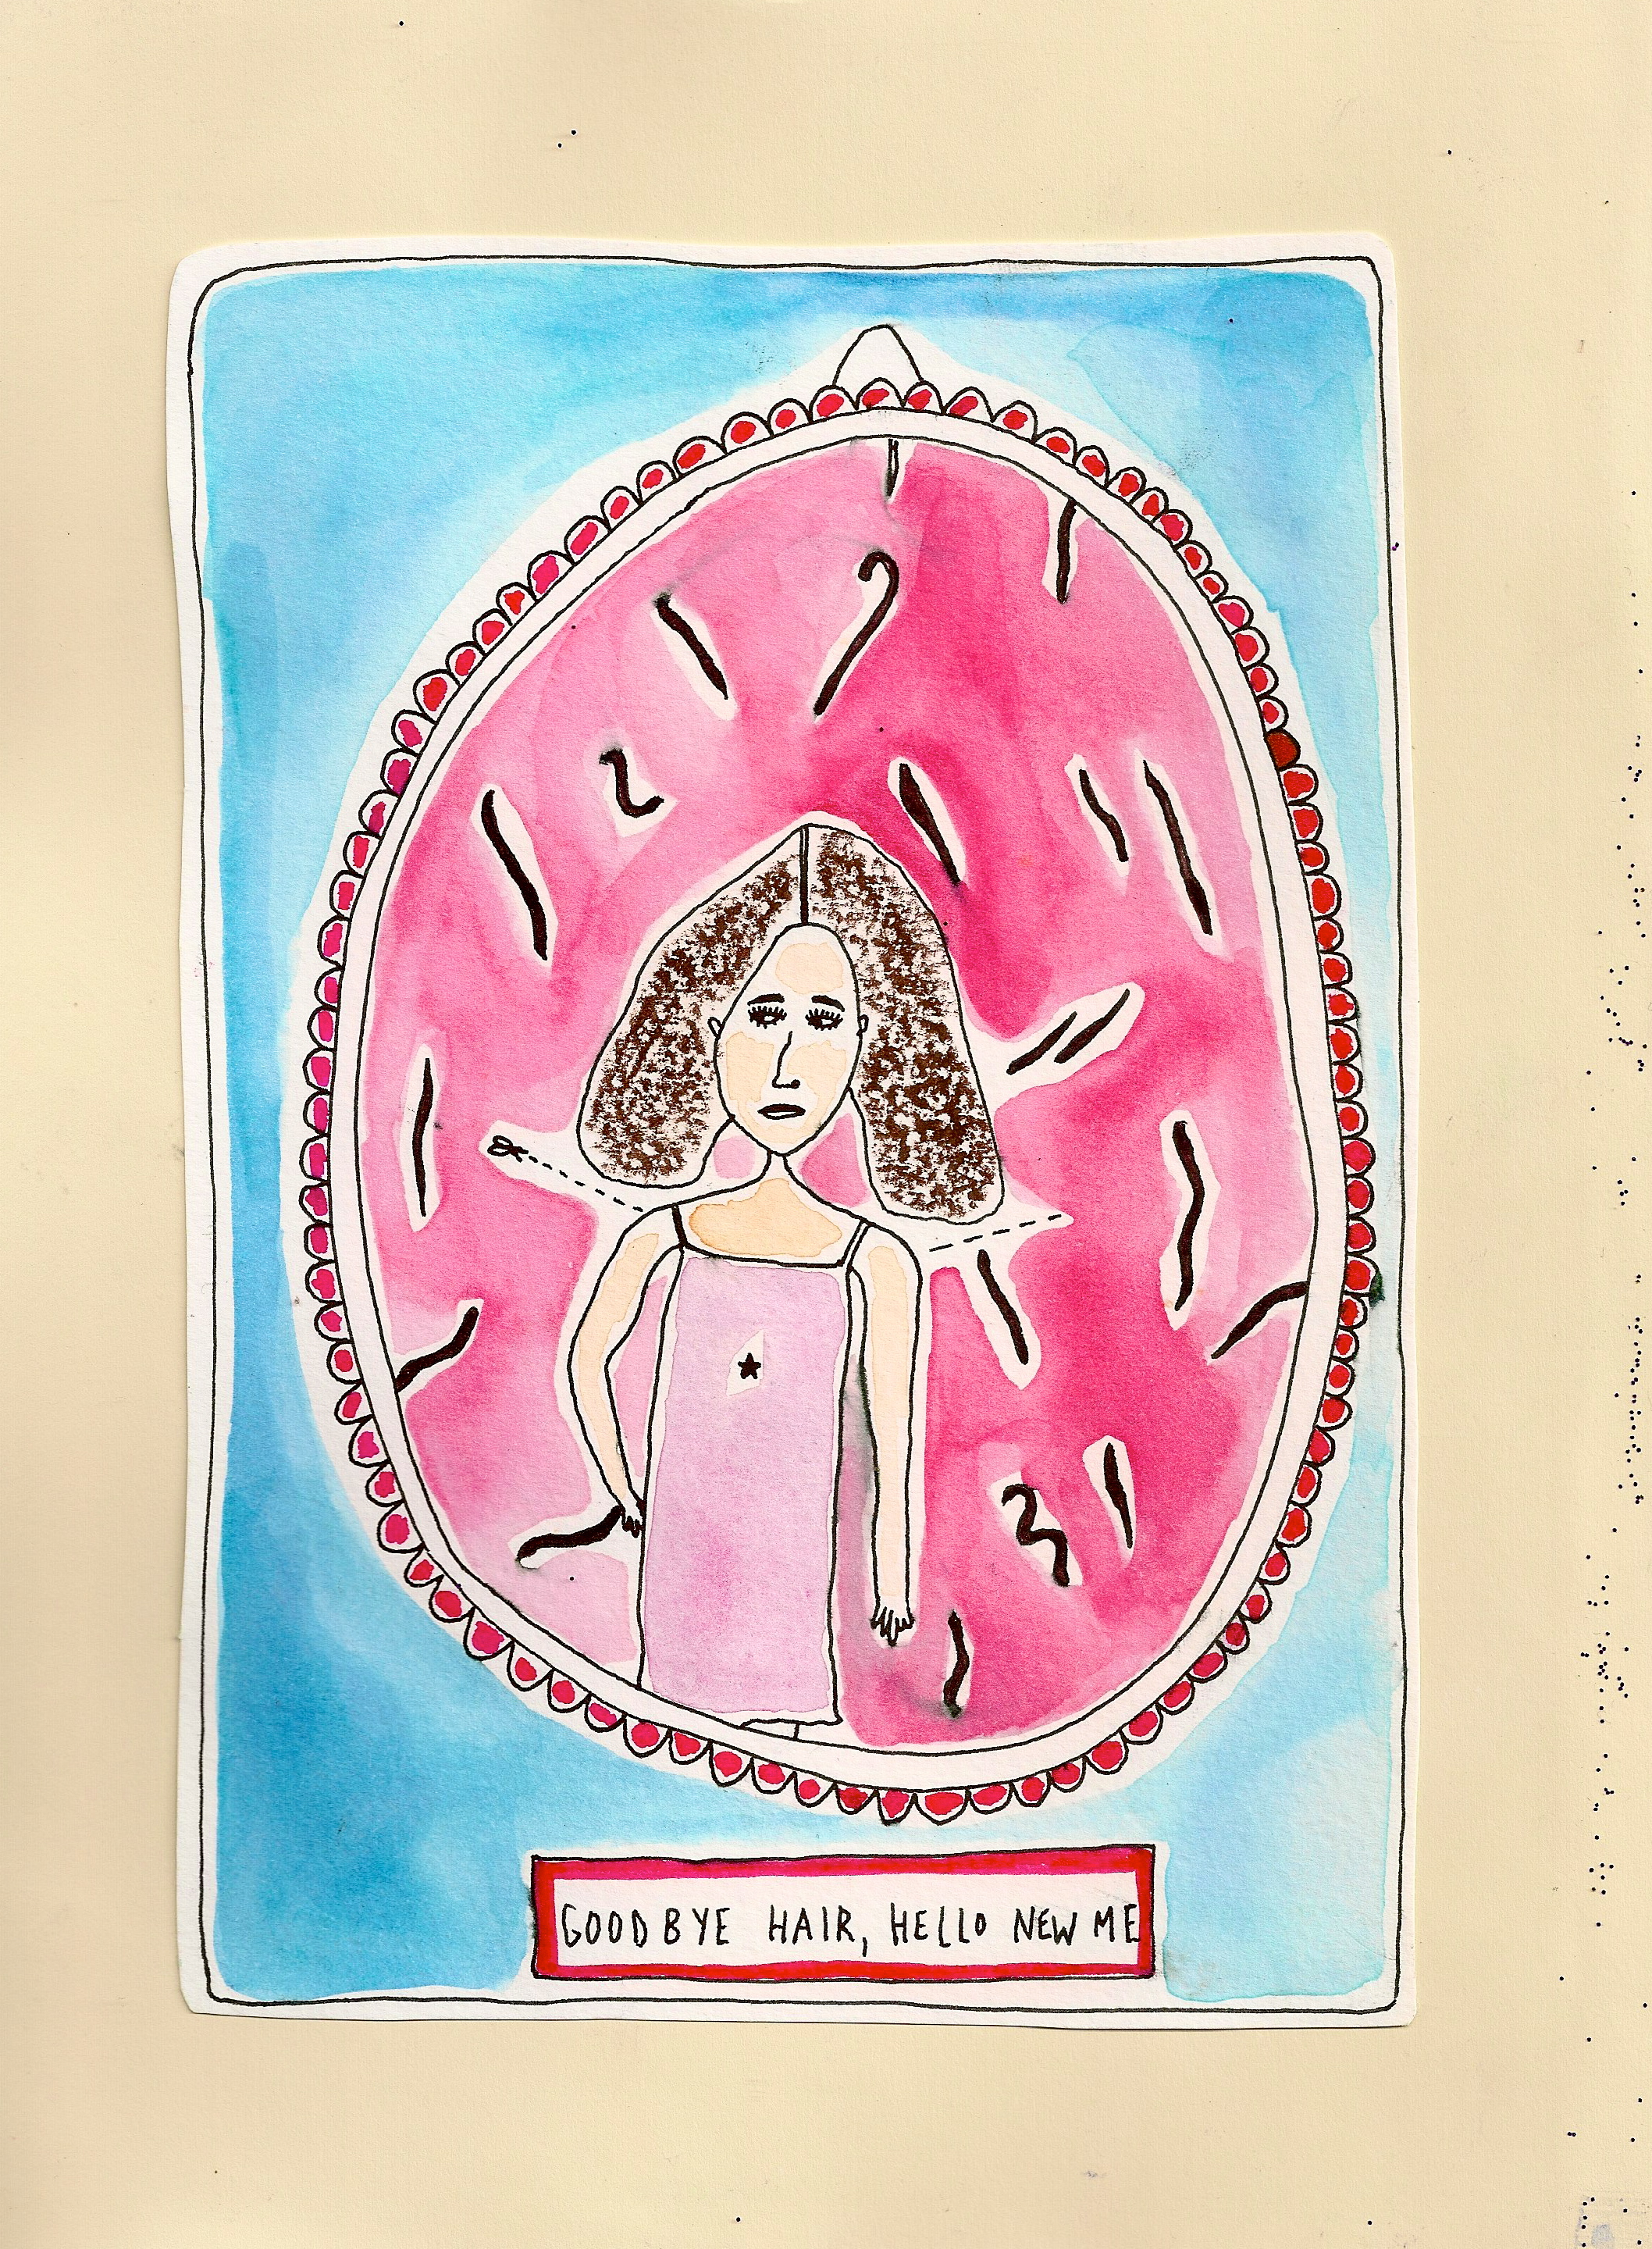 GOODBYE HAIR, HELLO NEW ME